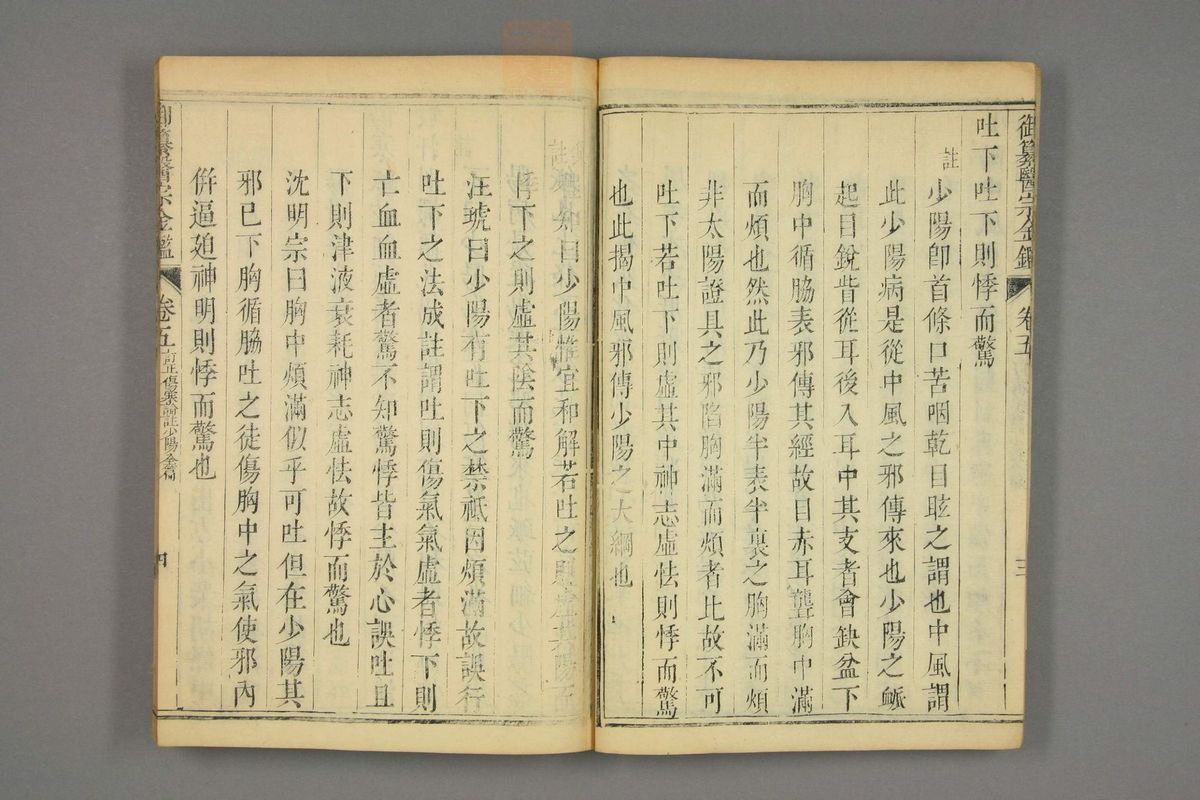 御纂醫宗金鑑 卷五 三
吐下吐下則悸而驚
註 少陽卽首條口苦咽乾目眩之謂也中風謂
此少陽病是從中風之邪傳來也少陽之脈
起目銳眥從耳後入耳中其支者會缺盆下
胸中循脇表邪傳其經故目赤耳聾胸中滿
而煩也然此乃少陽半表半裏之胸滿而煩
非太陽證具之邪陷胸滿而煩者比故不可
吐下若吐下則虛其中神志虛怯則悸而驚
也此揭中風邪傳少陽之大綱也
註 曰少陽惟宜和解若吐之則虛其陽而
悸下之則虛其陰而驚
汪琥曰少陽有吐下之禁祗因煩滿故誤行
吐下之法成註謂吐則傷氣氣虛者悸下則
亡血血虛者驚不知驚悸皆主於心誤吐且
下則津液衰耗神志虛怯故悸而驚也
沈明宗曰胸中煩滿似乎可吐但在少陽其
邪已下胸循脇吐之徒傷胸中之氣使邪內
倂逼廹神明則悸而驚也
御纂醫宗金鑑 卷五 訂正傷寒論註少陽全篇 四